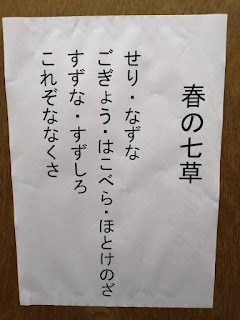 春の七草
せり・なずな
ごぎょう・はこべら・ほとけのざ
すずな・すずしろ
これぞななくさ